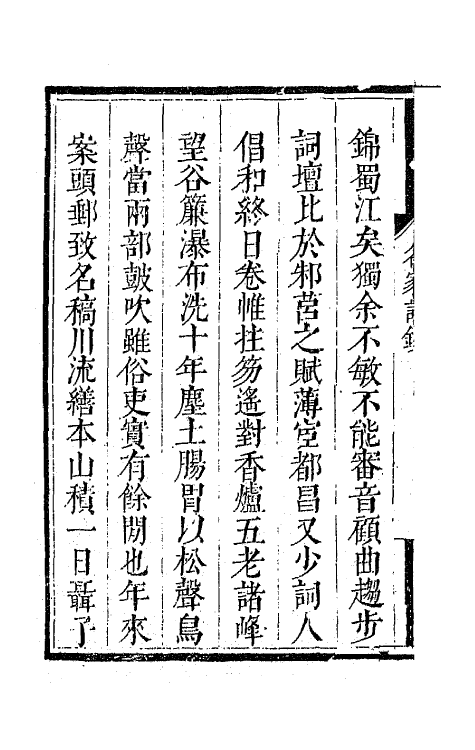 錦蜀江矣獨余不敏不能審音顧曲趨步
詞壇比於邾莒之賦薄宦都昌又少詞人
倡和終日卷帷拄笏遙對香爐五老諸峰
望谷簾瀑布洗十年塵土腸胃以松聲鳥
聲當兩部鼓吹雖俗吏實有餘閒也年來
案頭郵致名稿川流繕本山積一日聶子